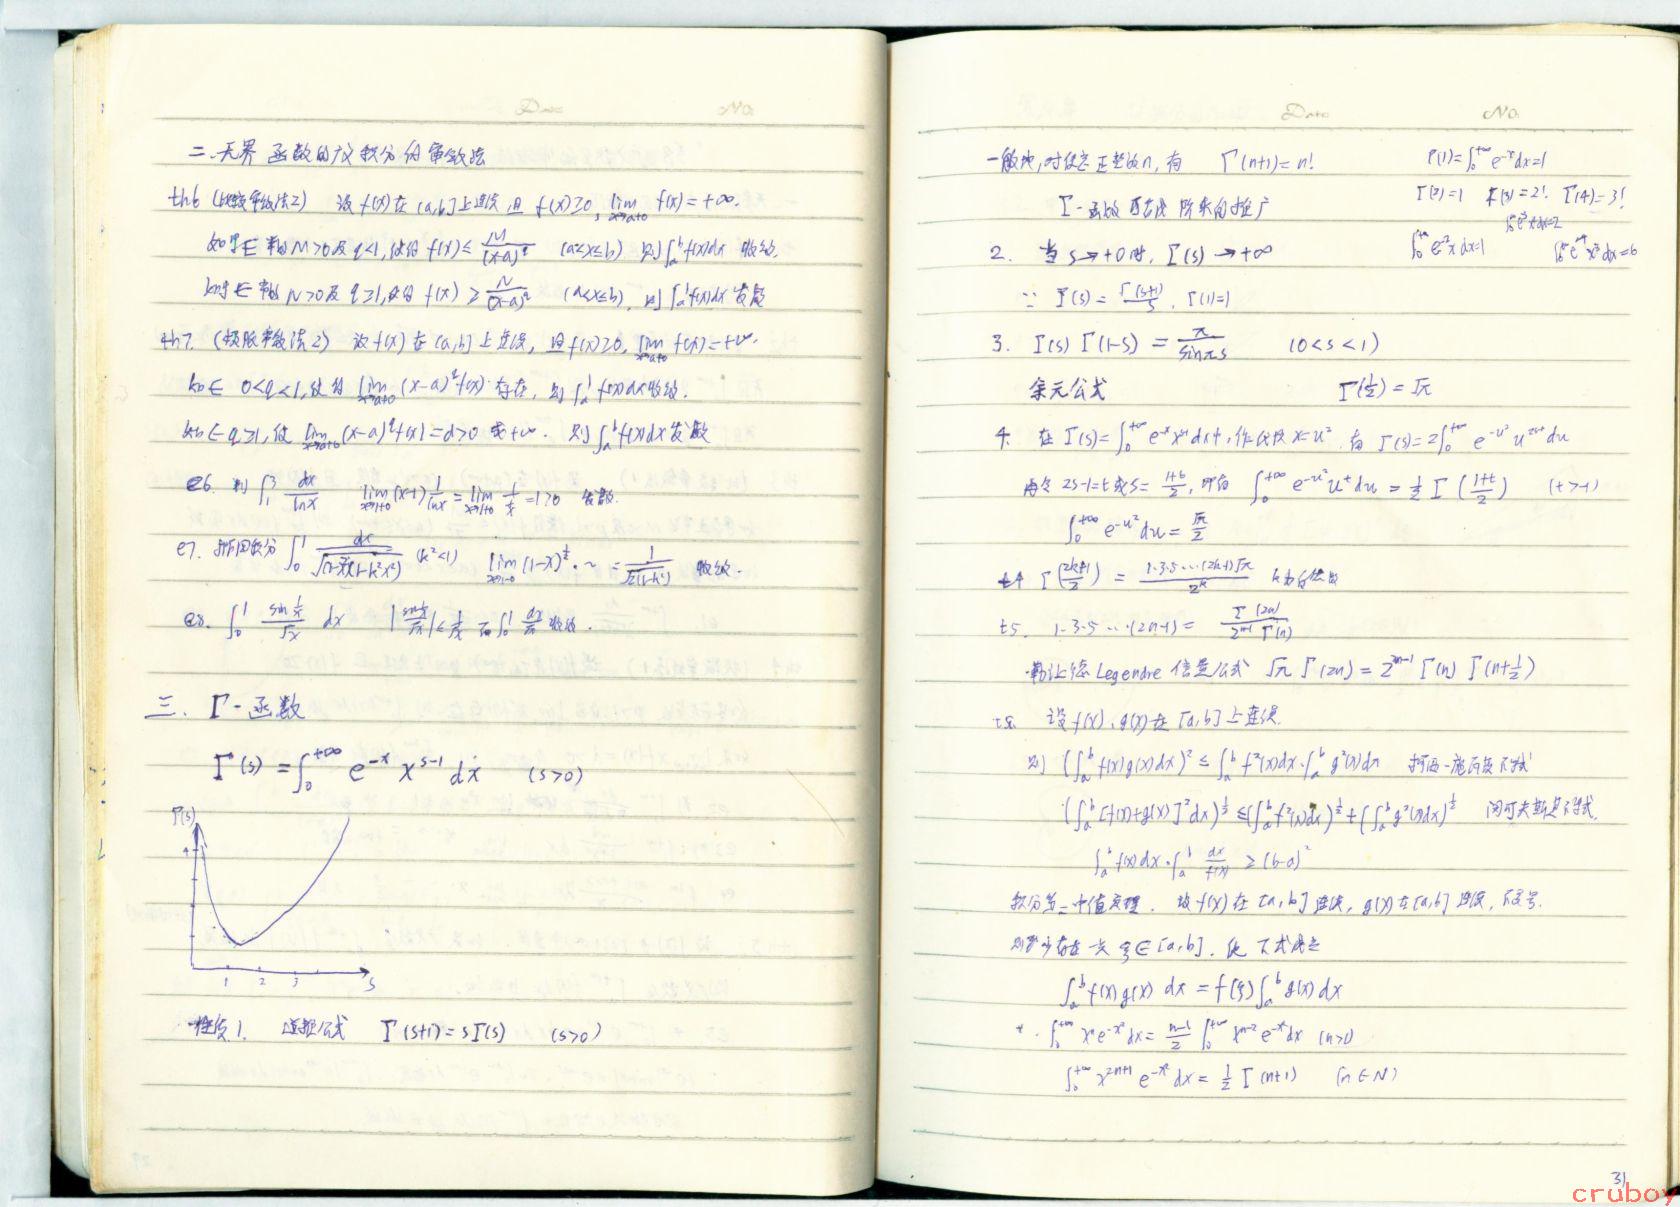 Date No.
二.无界函数的广义积分的审敛法
th6 (比较审敛法2) 设f(x)在(a,b]上连续且 f(x)≥0, lim x→a+0 f(x)=+∞.
如果∃常数M>0及q<1,使得f(x)≤ M/(x-a)^q (a<x≤b) 则∫_a^b f(x)dx 收敛.
如果∃常数N>0及q≥1,使得 f(x) ≥ N/(x-a)^q (a<x≤b), 则∫_a^b f(x)dx 发散
th7. (极限审敛法2) 设f(x)在(a,b]上连续, 且f(x)≥0, lim x→a+0 f(x)=+∞.
如∃ 0<q<1,使得 lim x→a+0 (x-a)^q f(x) 存在, 则 f(x)dx收敛.
如∃ q≥1,使 lim x→a+0 (x-a)^q f(x)=d>0 或+∞. 则∫_a^b f(x)dx发散
e6. 判∫_1^3 dx/lnx lim x→1+0 (x-1) 1/lnx = lim x→1+0 1/(1/x) =1>0 发散.
e7. 椭圆积分 ∫_0^1 dx/√((1-x²)(1-k²x²)) (k²<1) lim x→1-0 (1-x)^½·~ = 1/√(2(1-k²)) 收敛.
e8. ∫_0^1 sin(1/x)/√x dx |sin(1/x)/√x|≤1/√x 而∫_0^1 dx/√x 收敛.
三. Γ-函数
Γ(s)=∫_0^{+∞} e^{-x} x^{s-1} dx (s>0)
Γ(s)
4
1 2 3 s
性质1. 递推公式 Γ(s+1)=sΓ(s) (s>0)
Date No.
一般地,对任意正整数n, 有 Γ(n+1)=n! Γ(1)=∫_0^{+∞} e^{-x}dx=1
Γ(2)=1 Γ(3)=2! Γ(4)=3!
Γ-函数可看成阶乘的推广
2. 当s→+0时, Γ(s)→+∞
∵ Γ(s)=Γ(s+1)/s, Γ(1)=1
3. Γ(s)Γ(1-s)=π/sinπs (0<s<1)
余元公式 Γ(½)=√π
4. 在Γ(s)=∫_0^{+∞} e^{-x} x^{s-1}dx中,作代换x=u², 有 Γ(s)=2∫_0^{+∞} e^{-u²} u^{2s-1}du
再令2s-1=t或s=(1+t)/2, 即有 ∫_0^{+∞} e^{-u²} u^t du = ½Γ((1+t)/2) (t>-1)
∫_0^{+∞} e^{-u²}du=√π/2
t4 Γ((2k+1)/2) = 1·3·5···(2k-1)√π/2^k k为自然数
t5. 1·3·5···(2n-1)= Γ(2n)/(2^{n-1} Γ(n))
勒让德Legendre 倍量公式 √π Γ(2n)=2^{2n-1} Γ(n) Γ(n+½)
t8. 设f(x),g(x)在[a,b]上连续.
则 (∫_a^b f(x)g(x)dx)² ≤ ∫_a^b f²(x)dx·∫_a^b g²(x)dx 柯西-施瓦茨不等式
(∫_a^b [f(x)+g(x)]²dx)^½ ≤(∫_a^b f²(x)dx)^½+(∫_a^b g²(x)dx)^½ 闵可夫斯基不等式.
∫_a^b f(x)dx·∫_a^b dx/f(x) ≥(b-a)²
积分第一中值定理. 设f(x)在[a,b]连续, g(x)在[a,b]连续, 不变号.
则至少存在一点ξ∈[a,b], 使下式成立
∫_a^b f(x)g(x) dx=f(ξ)∫_a^b g(x)dx
∫_0^{+∞} x^n e^{-x²}dx= (n-1)/2 ∫_0^{+∞} x^{n-2} e^{-x²}dx (n>1)
∫_0^{+∞} x^{2n+1} e^{-x²}dx=½Γ(n+1) (n∈N)
31
cruboy